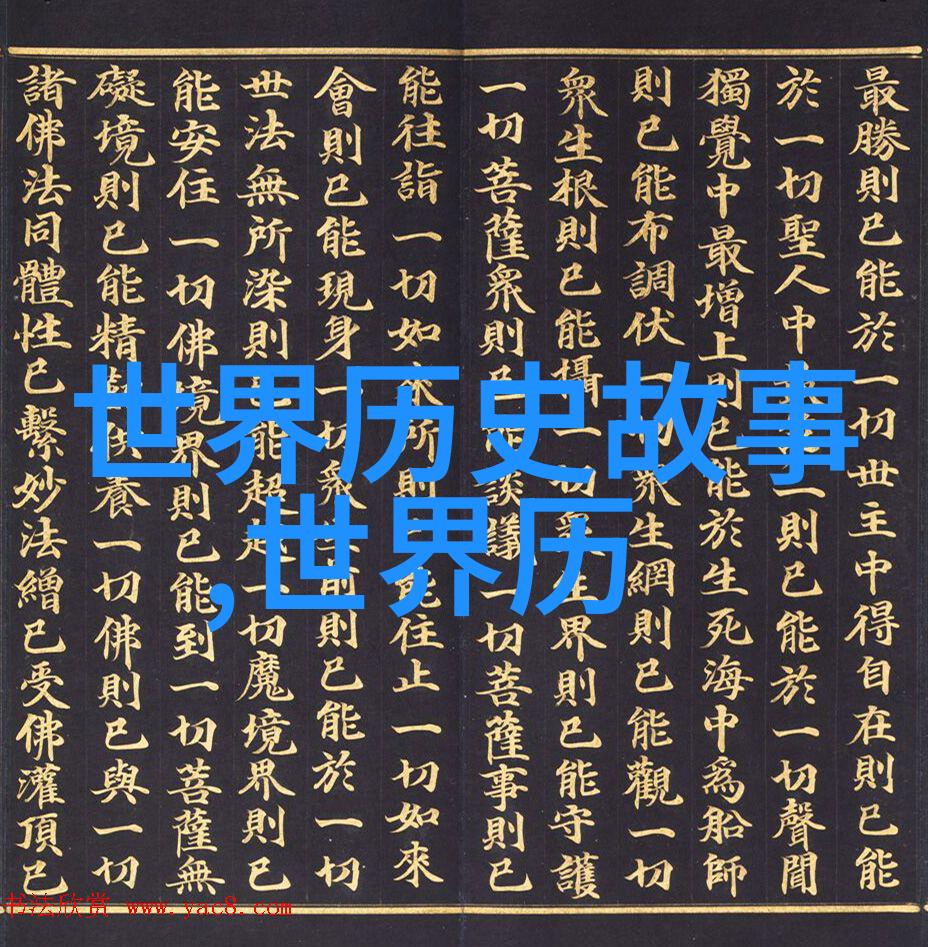 最勝則已能於一切世主中得自在則已能
於一切聖人中一則已能於一切聲聞
獨覺中最增上則已能於生死海中爲船師
則已能布調伏一切衆生網則已能觀一切
衆生根則已能攝一切衆生界則已能守護
一切菩薩衆則已能談議一切菩薩事則已
能往詣一切如來所則已能住止一切如來
會則已能現身一切衆生前則已能於一切
世法無所染則已能超越一切魔境界則已
能安住一切佛境界則已能到一切菩薩無
礙境則已能精勤供養一切佛則已與一切
諸佛法同體性已繫妙法繒已受佛灌頂已
世界历史故事
,世界历
书法欣赏 www.yac8.com